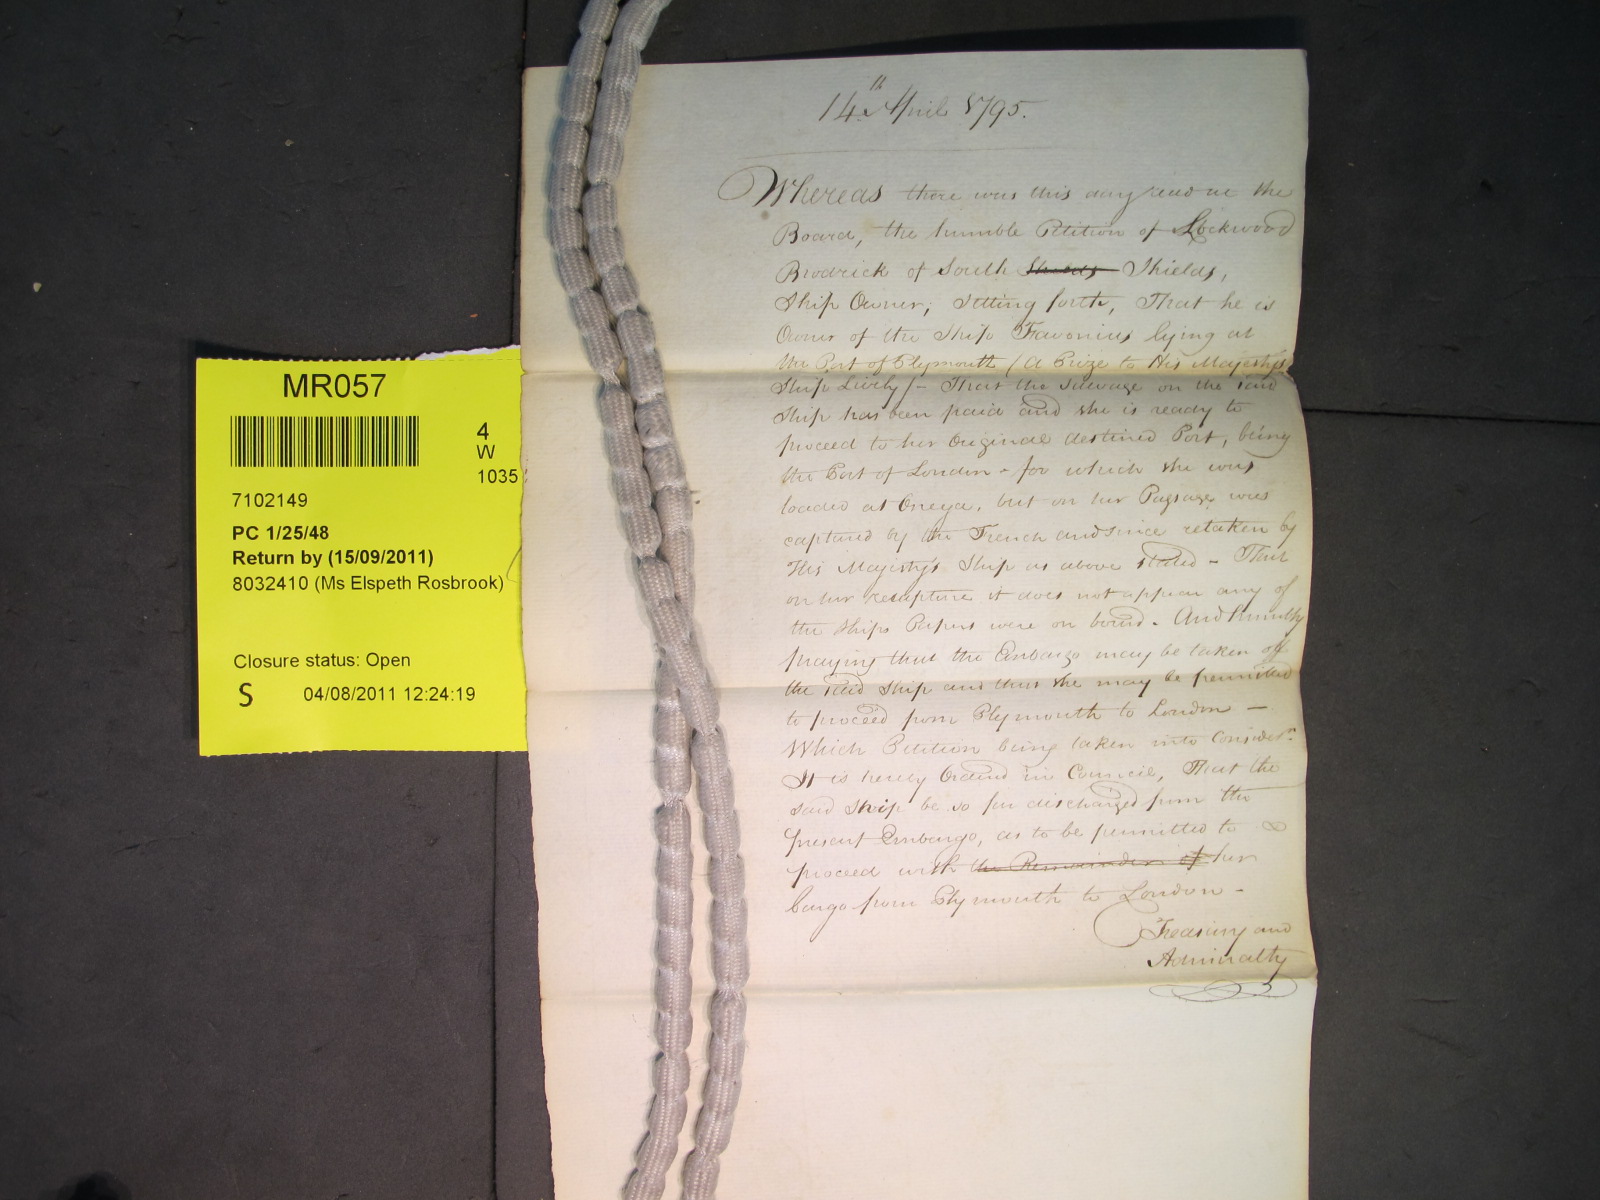 MR057
4
W
1035
7102149
PC 1/25/48
Return by (15/09/2011)
8032410 (Ms Elspeth Rosbrook)
Closure status: Open
S 04/08/2011 12:24:19
14.th April 1795.
Whereas there was this day read at the
Board, the humble Petition of Lockwood
Brodrick of South Shields Shields,
Ship Owner; setting forth, That he is
Owner of the Ship Favonius lying at
the Port of Plymouth (a Prize to His Majesty's
Ship Lively) - That the Salvage on the said
Ship has been paid and she is ready to
proceed to her Original destined Port, being
the Port of London - for which she was
loaded at Onega, but on her Passage was
captured by the French and since retaken by
His Majesty's Ship as above stated - That
on her recapture it does not appear any of
the Ships Papers were on board. And humbly
praying that the Embargo may be taken off
the said Ship and that she may be permitted
to proceed from Plymouth to London -
Which Petition being taken into Considern.
It is hereby Ordered in Council, That the
said Ship be so far discharged from the
present Embargo, as to be permitted to
proceed with the Remainder of her
Cargo from Plymouth to London -
Treasury and
Admiralty